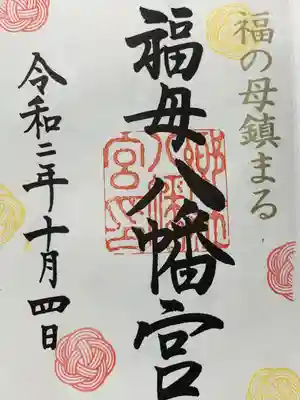 福の母鎮まる
福母八幡宮
令和二年十月四日